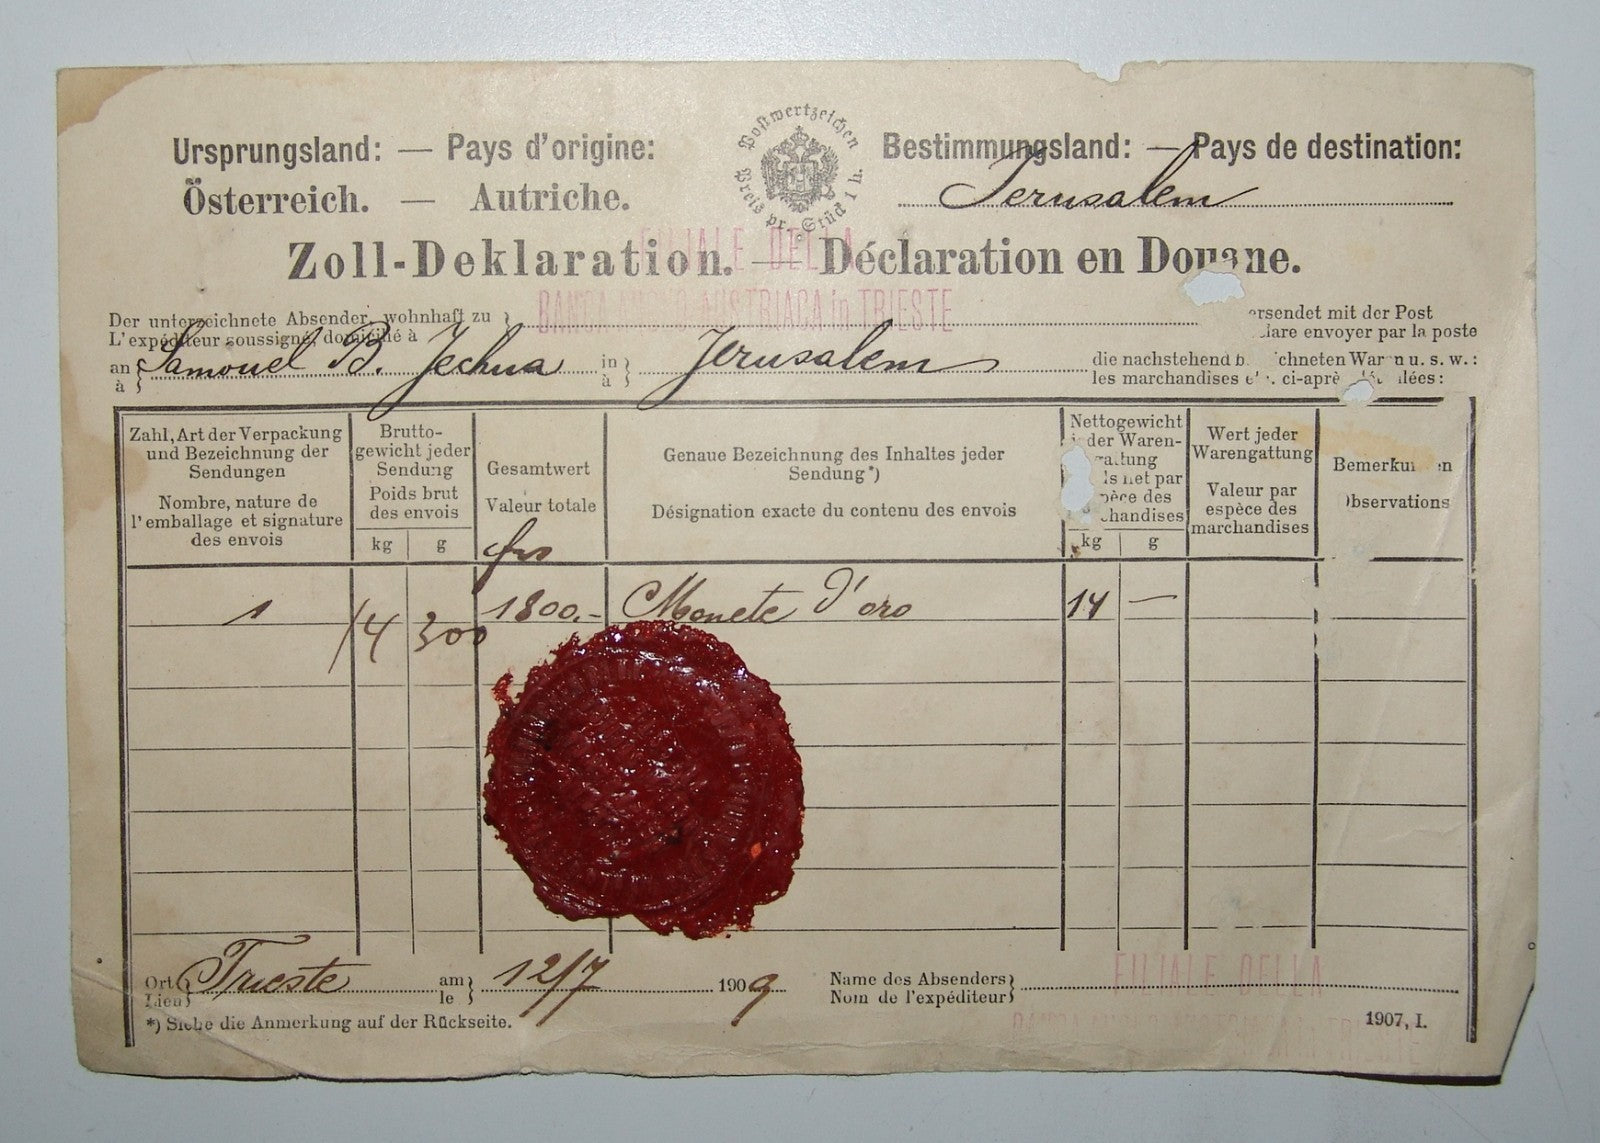 Ursprungsland: — Pays d'origine:
Österreich. — Autriche.
Postwertzeichen
Preis pr. Stück 1 h.
Bestimmungsland: — Pays de destination:
Jerusalem
Zoll-Deklaration. — Déclaration en Douane.
FILIALE DELLA
BANCA ANGLO-AUSTRIACA in TRIESTE
Der unterzeichnete Absender, wohnhaft zu
L'expéditeur soussigné, domicilié à
ersendet mit der Post
lare envoyer par la poste
an
à
Samouel B. Jechua
in
à
Jerusalem
die nachstehend b chneten War n u. s. w.:
les marchandises ci-aprè llées:
Zahl, Art der Verpackung
und Bezeichnung der
Sendungen
Nombre, nature de
l'emballage et signature
des envois
Brutto-
gewicht jeder
Sendung
Poids brut
des envois
kg g
Gesamtwert
Valeur totale
frs
Genaue Bezeichnung des Inhaltes jeder
Sendung*)
Désignation exacte du contenu des envois
Nettogewicht
der Waren-
gattung
ds net par
pèce des
chandises
kg g
Wert jeder
Warengattung
Valeur par
espèce des
marchandises
Bemerku en
Observations
1 14 300 1800.- Monete d'oro 14 —
Ort
Lieu
Trieste
am
le
12/7 1909
Name des Absenders
Nom de l'expéditeur
FILIALE DELLA
BANCA ANGLO-AUSTRIACA in TRIESTE
*) Siehe die Anmerkung auf der Rückseite.
1907, I.